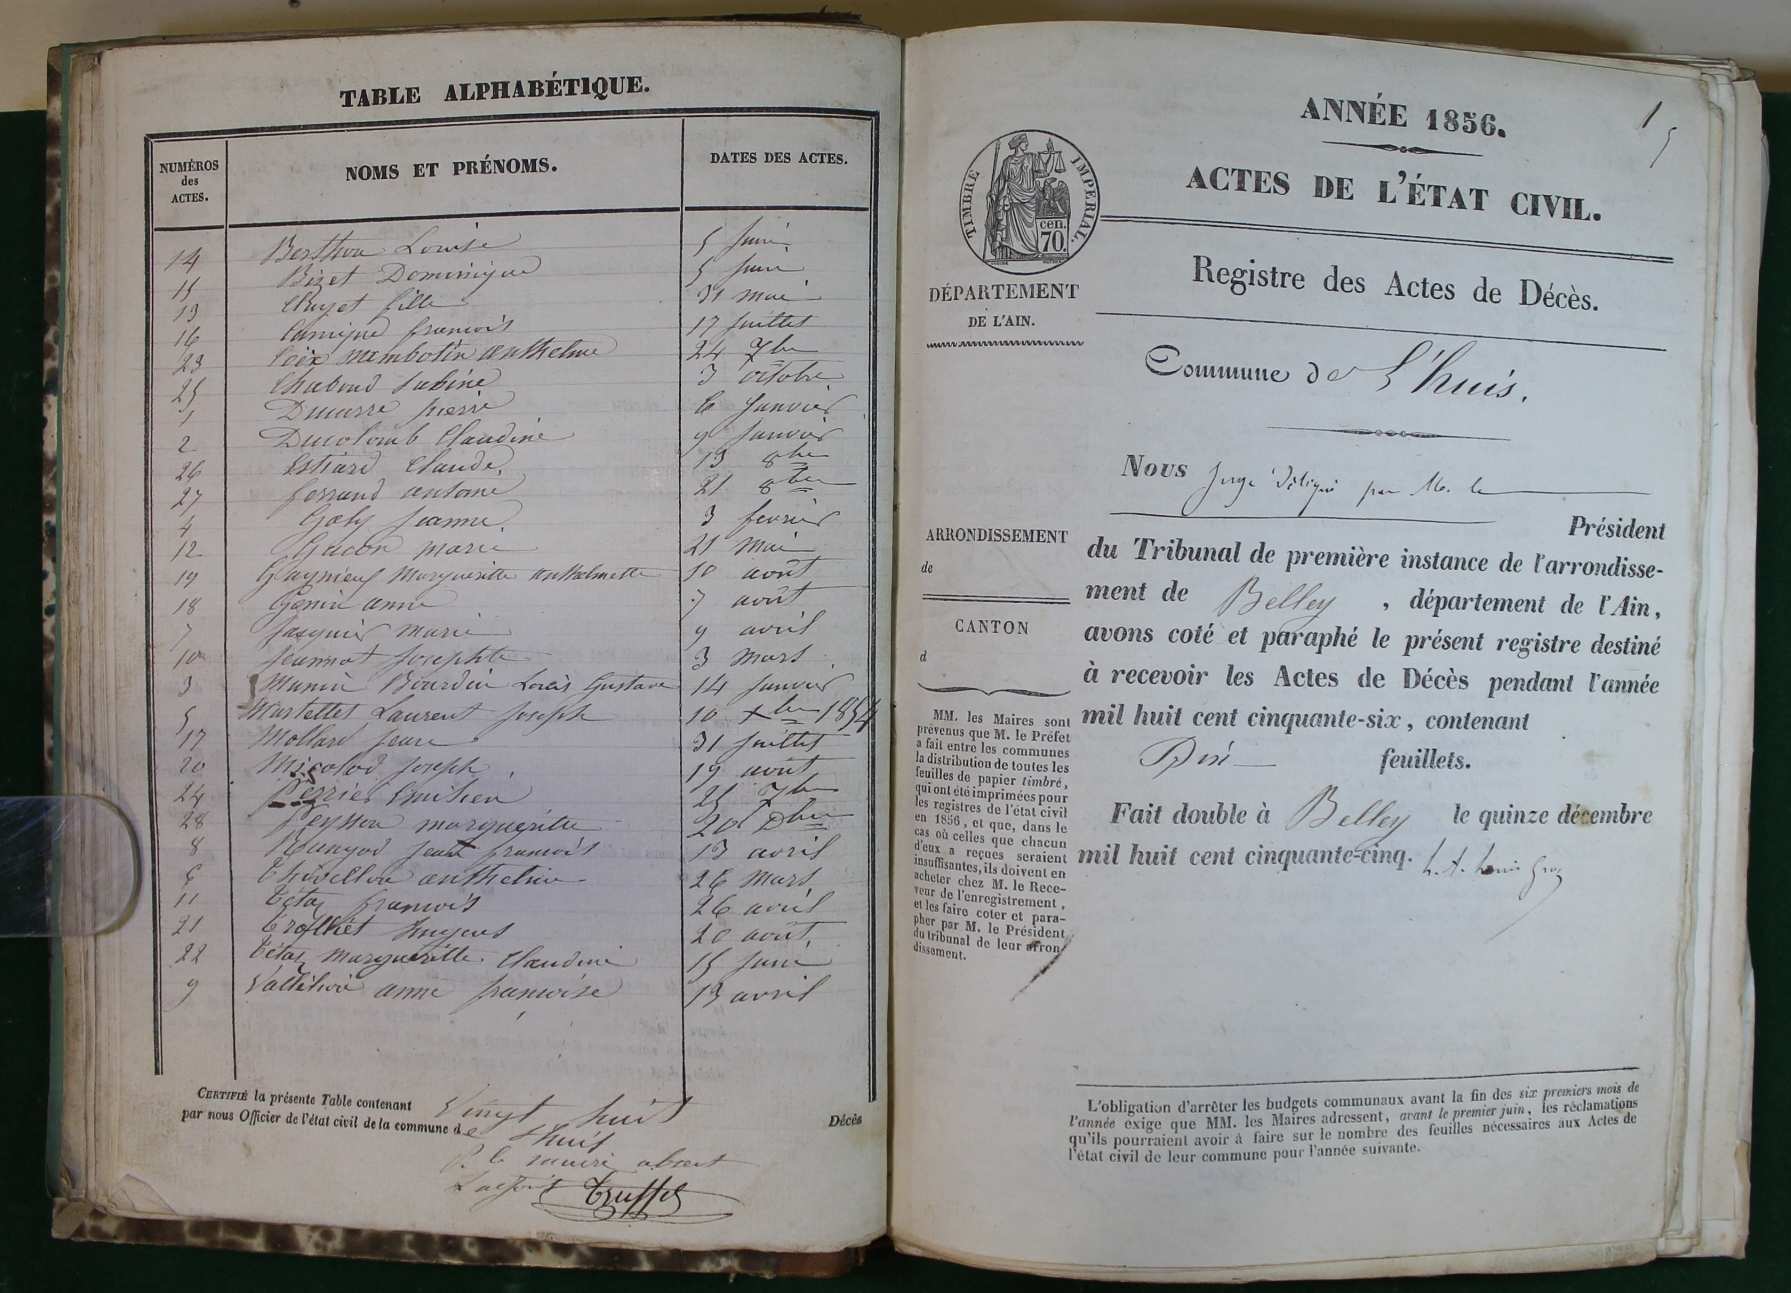 TABLE ALPHABÉTIQUE.
NUMÉROS
des
ACTES.
NOMS ET PRÉNOMS.
DATES DES ACTES.
14 Berthon Louise 5 Juin
15 Bizet Dominique 5 Juin
13 fille 31 mai
16 françois 17 Juillet
23 anthelme 24 7bre
25 Chaboud Sabine 3 octobre
1 pierre 6 Janvier
2 Ducolomb Claudine 9 Janvier
26 Claude 13 8bre
27 ferrand antoine 21 8bre
4 Goly Jeanne 3 fevrier
12 Gacon marie 21 mai
19 Marguerite anthelmette 10 août
18 Genin anne 7 août
7 Jacquier marie 9 avril
10 Jeannot Josephte 3 mars
3 Munin Bourdin Louis Gustave 14 Janvier
5 Martellet Laurent Joseph 10 Xbre 1854
17 Mollard Jean 31 Juillet
20 Joseph 19 août
24 Perrier Emilien 25 7bre
28 Peysson marguerite 20 Dbre
8 Jean françois 13 avril
6 anthelme 26 mars
11 Tétaz françois 26 avril
21 Trolliet 20 août
22 Tétaz marguerite Claudine 15 Juin
9 anne françoise 13 avril
CERTIFIÉ la présente Table contenant Vingt huit Décès
par nous Officier de l'état civil de la commune de Lhuis
P. le maire absent
L'adjoint Truffet
ANNÉE 1856.
1
ACTES DE L'ÉTAT CIVIL.
TIMBRE IMPÉRIAL.
cen.
70.
Registre des Actes de Décès.
DÉPARTEMENT
DE L'AIN.
Commune de L'huis.
Nous Juge délégué par M. le
Président
ARRONDISSEMENT
de
du Tribunal de première instance de l'arrondisse-
ment de Belley, département de l'Ain,
CANTON
d
avons coté et paraphé le présent registre destiné
à recevoir les Actes de Décès pendant l'année
mil huit cent cinquante-six, contenant
Dix feuillets.
Fait double à Belley le quinze décembre
mil huit cent cinquante-cinq.
MM. les Maires sont
prévenus que M. le Préfet
a fait entre les communes
la distribution de toutes les
feuilles de papier timbré,
qui ont été imprimées pour
les registres de l'état civil
en 1856, et que, dans le
cas où celles que chacun
d'eux a reçues seraient
insuffisantes, ils doivent en
acheter chez M. le Rece-
veur de l'enregistrement,
et les faire coter et para-
pher par M. le Président
du tribunal de leur arron-
dissement.
L'obligation d'arrêter les budgets communaux avant la fin des six premiers mois de
l'année exige que MM. les Maires adressent, avant le premier juin, les réclamations
qu'ils pourraient avoir à faire sur le nombre des feuilles nécessaires aux Actes de
l'état civil de leur commune pour l'année suivante.